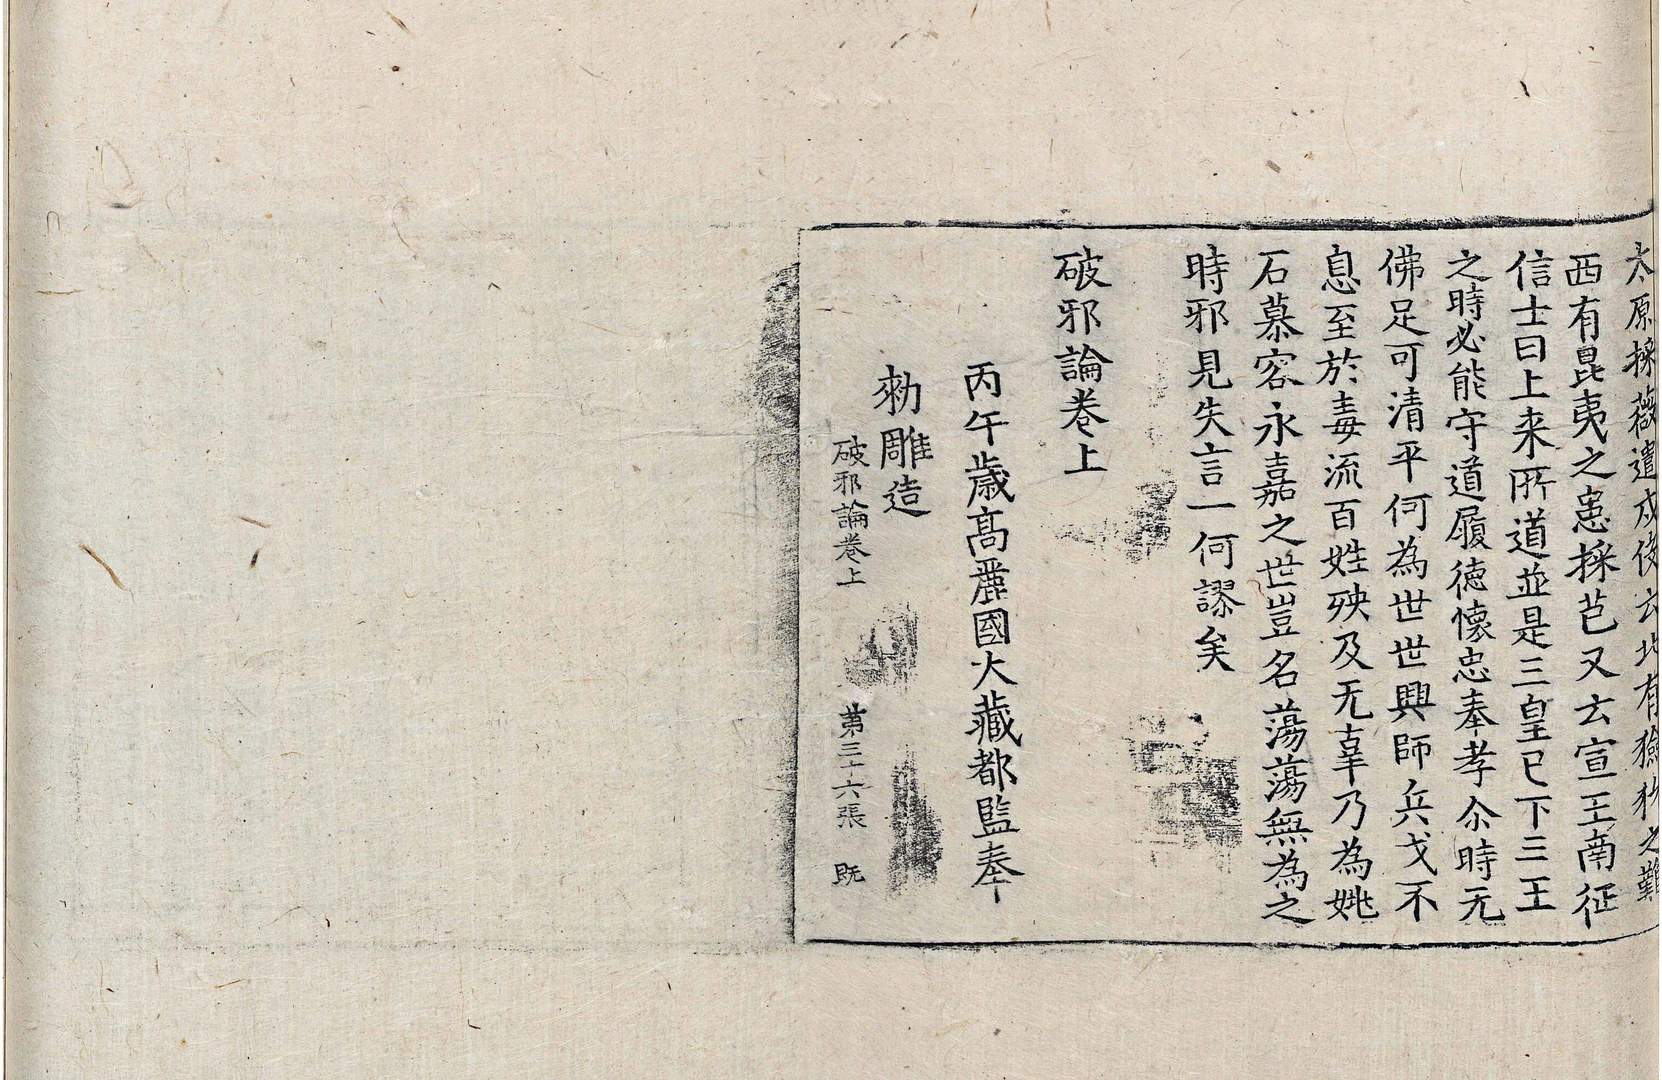 太原採薇遣戍役云北有獫狁之難
西有昆夷之患採芑又云宣王南征
信士曰上来所道並是三皇已下三王
之時必能守道履德懷忠奉孝尒時无
佛足可清平何為世世興師兵戈不
息至於毒流百姓殃及无辜乃為姚
石慕容永嘉之世豈名蕩蕩無為之
時邪見失言一何謬矣
破邪論卷上
丙午歲高麗國大藏都監奉
勑雕造
破邪論卷上 第三十六張 既